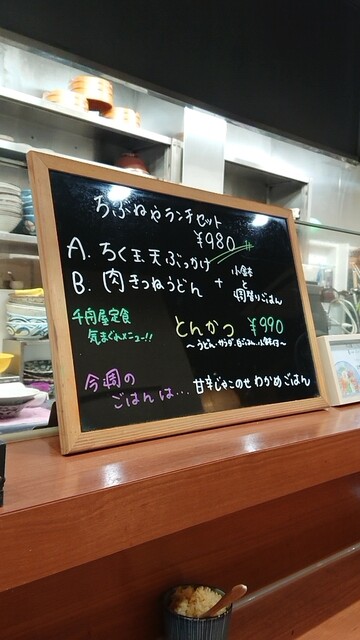 ちぶねやランチセット
¥980
A. ちく玉天ぶっかけ
B. 肉きつねうどん
+
小鉢
と
間借りごはん
千舟屋定食
気まぐれメニュー!!
とんかつ ¥990
〜うどん・サラダ・白ごはん・小鉢付〜
今週の
ごはんは… 甘辛じゃこのせわかめごはん